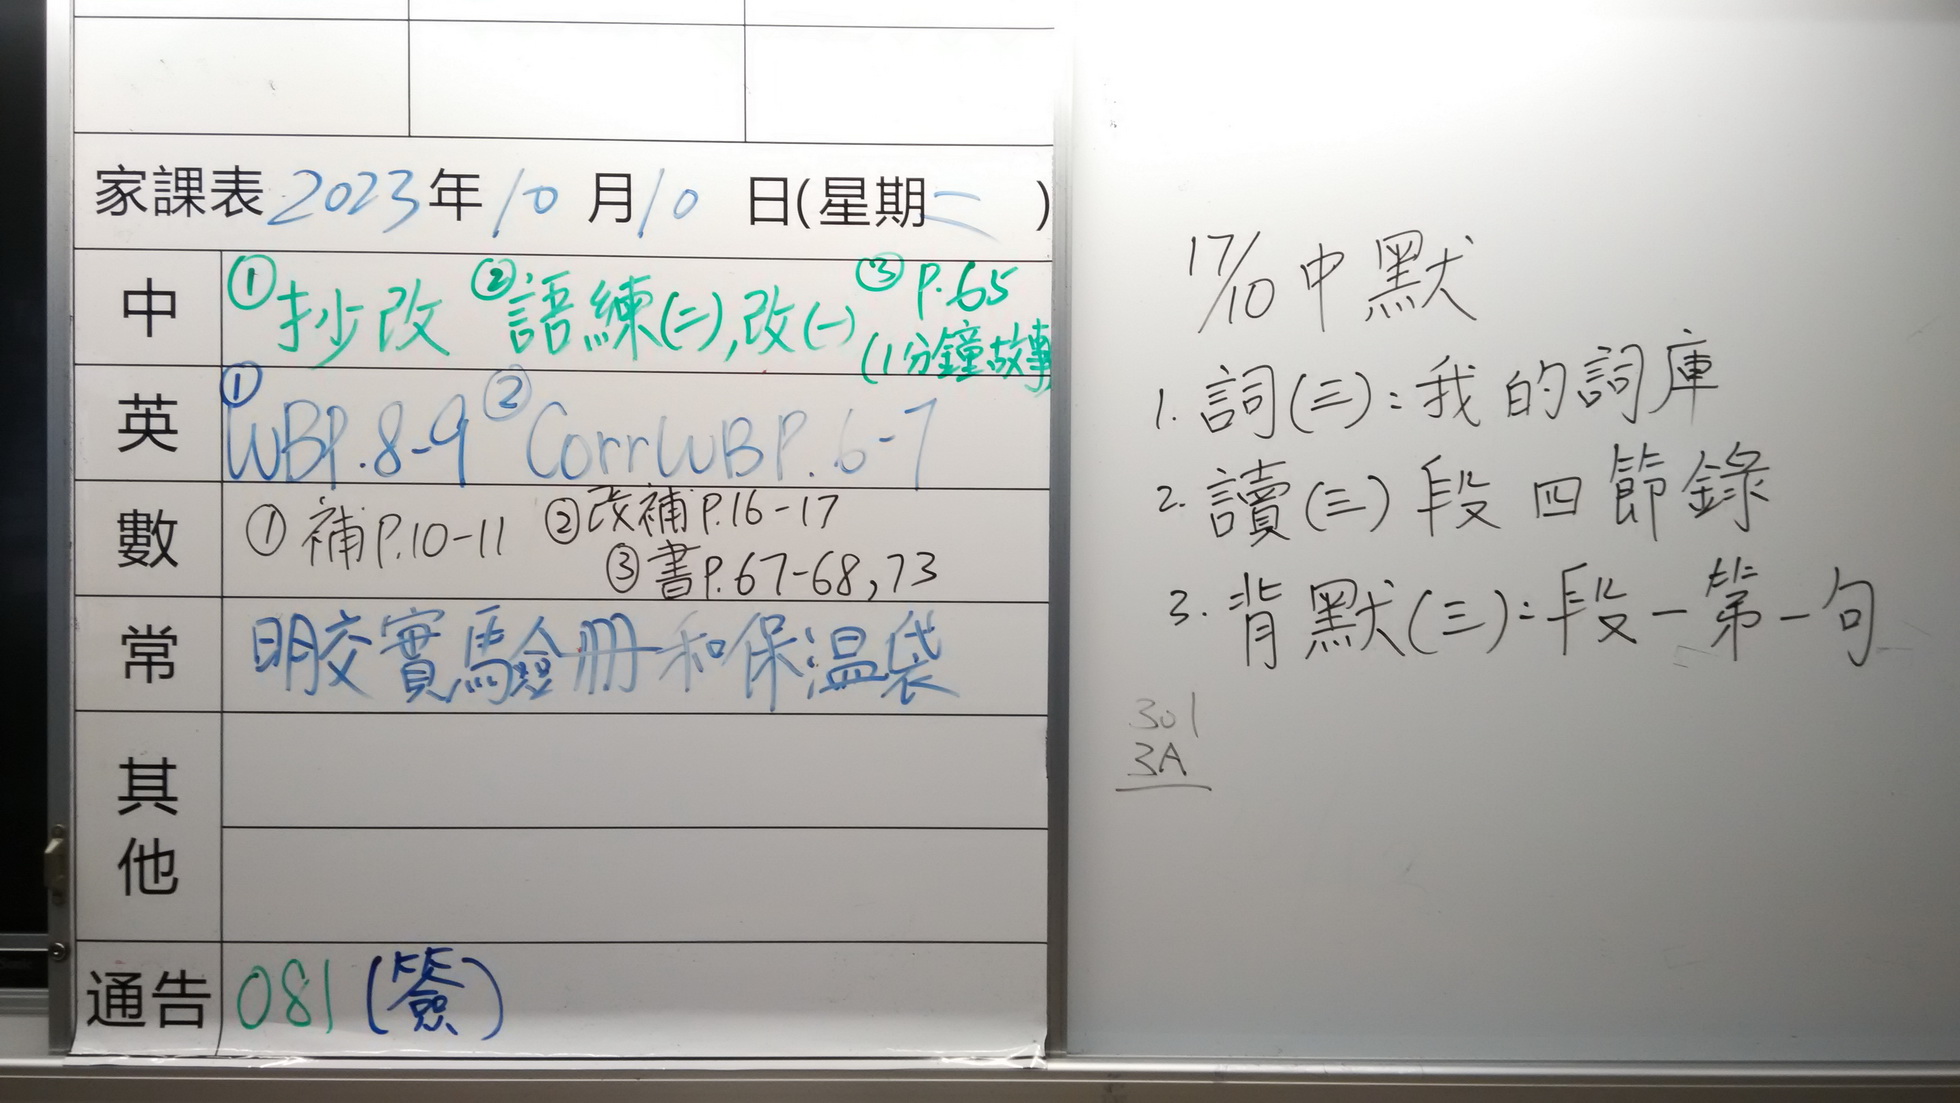 家課表 2023年10月10日(星期二)
中 ①抄改 ②語練(二),改(一) ③P.65
(1分鐘故事)
英 ①WBP.8-9 ②CorrWBP.6-7
數 ①補P.10-11 ②改補P.16-17
③書P.67-68,73
常 明交實驗冊和保温袋
其他
通告 081(簽)
17/10中默
1. 詞(三):我的詞庫
2. 讀(三)段四節錄
3. 背默(三):段一第一句
301
3A